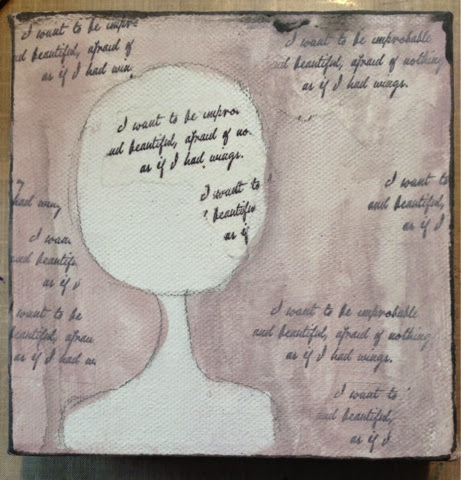 I want to be impro
nd beautiful, afraid of
as if I had win
I want to be improbable
and beautiful, afraid of nothing
as if I had wings.
I want to be impro
nd beautiful, afraid of no
as if I had wings.
I want to
beautiful
as if
had wing
I wan
nd beautif
as if
I want to be
beautiful, afrau
as if I had w
I want to
and beautiful,
as if I
I want to be improbable
and beautiful, afraid of nothing
as if I had wings.
I want to
and beautiful,
as if I